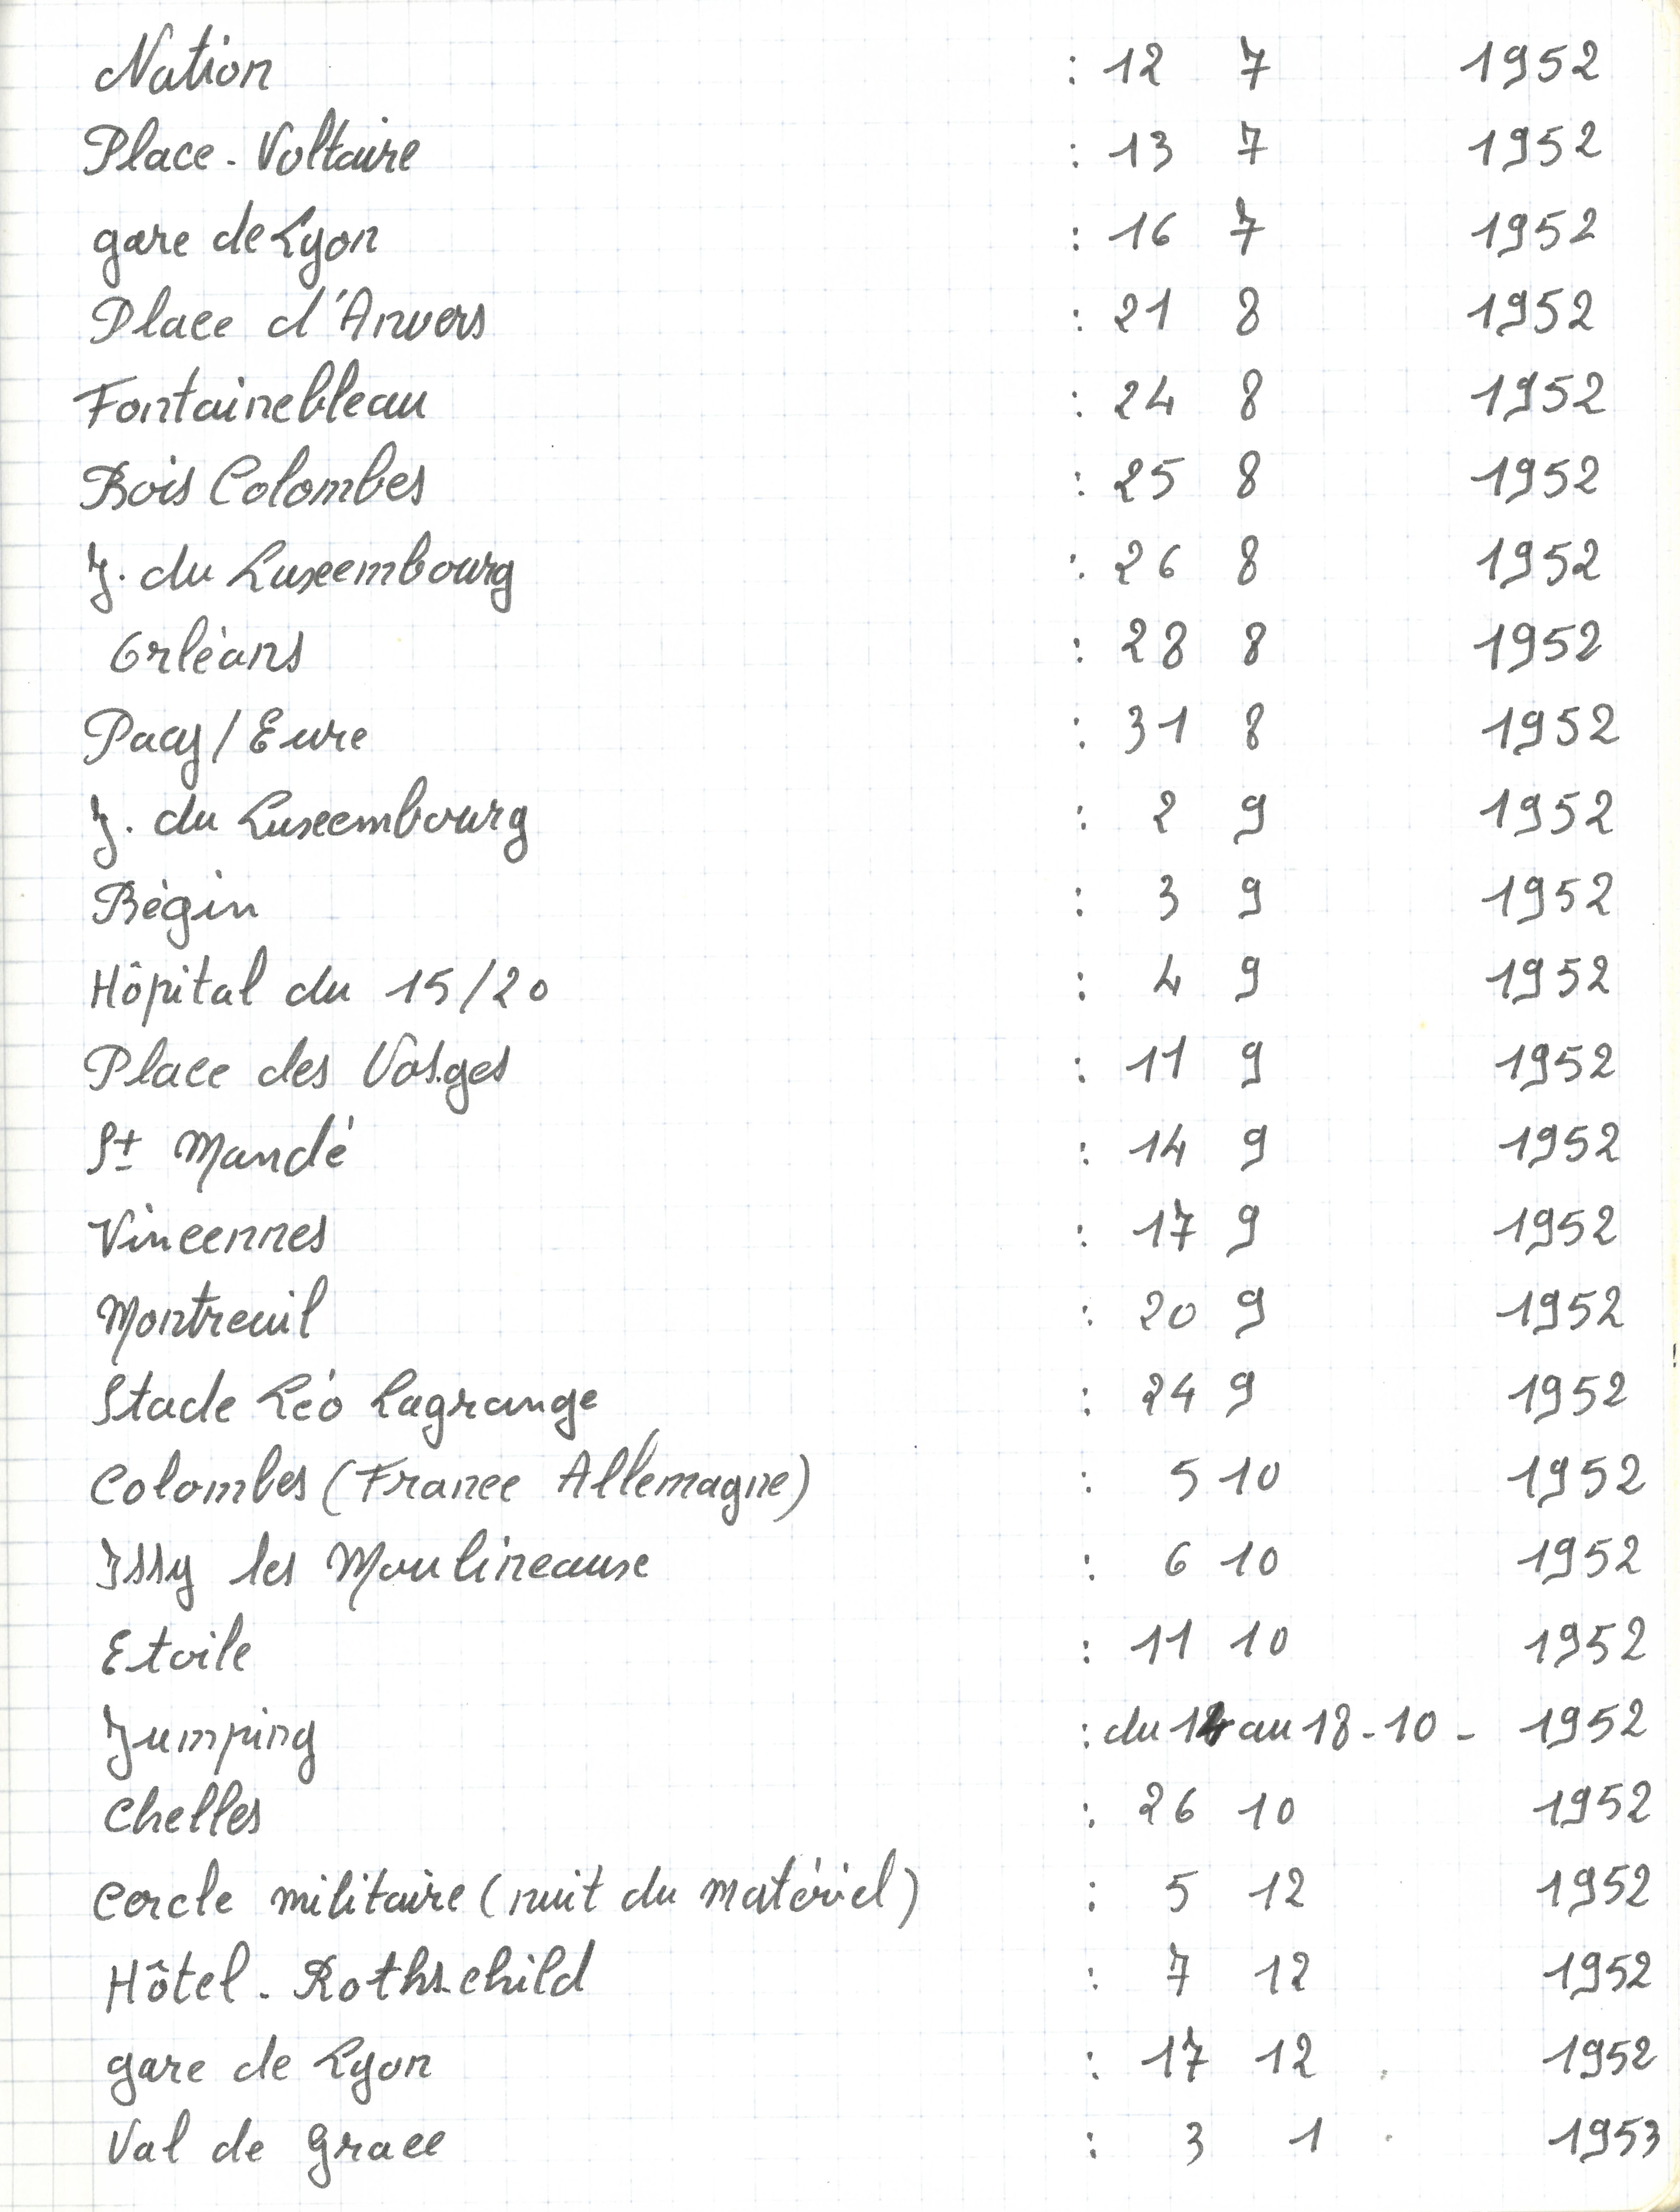 Nation : 12 7 1952
Place - Voltaire : 13 7 1952
gare de Lyon : 16 7 1952
Place d'Anvers : 21 8 1952
Fontainebleau : 24 8 1952
Bois Colombes : 25 8 1952
J. du Luxembourg : 26 8 1952
Orléans : 28 8 1952
Pacy / Eure : 31 8 1952
J. du Luxembourg : 2 9 1952
Bégin : 3 9 1952
Hôpital du 15/20 : 4 9 1952
Place des Vosges : 11 9 1952
St Mandé : 14 9 1952
Vincennes : 17 9 1952
Montreuil : 20 9 1952
Stade Léo Lagrange : 24 9 1952
Colombes (France Allemagne) : 5 10 1952
Issy les Moulineaux : 6 10 1952
Etoile : 11 10 1952
Jumping : du au 18 - 10 - 1952
Chelles : 26 10 1952
Cercle militaire (nuit du matériel) : 5 12 1952
Hôtel - Rothschild : 7 12 1952
gare de Lyon : 17 12 1952
Val de Grace : 3 1 1953